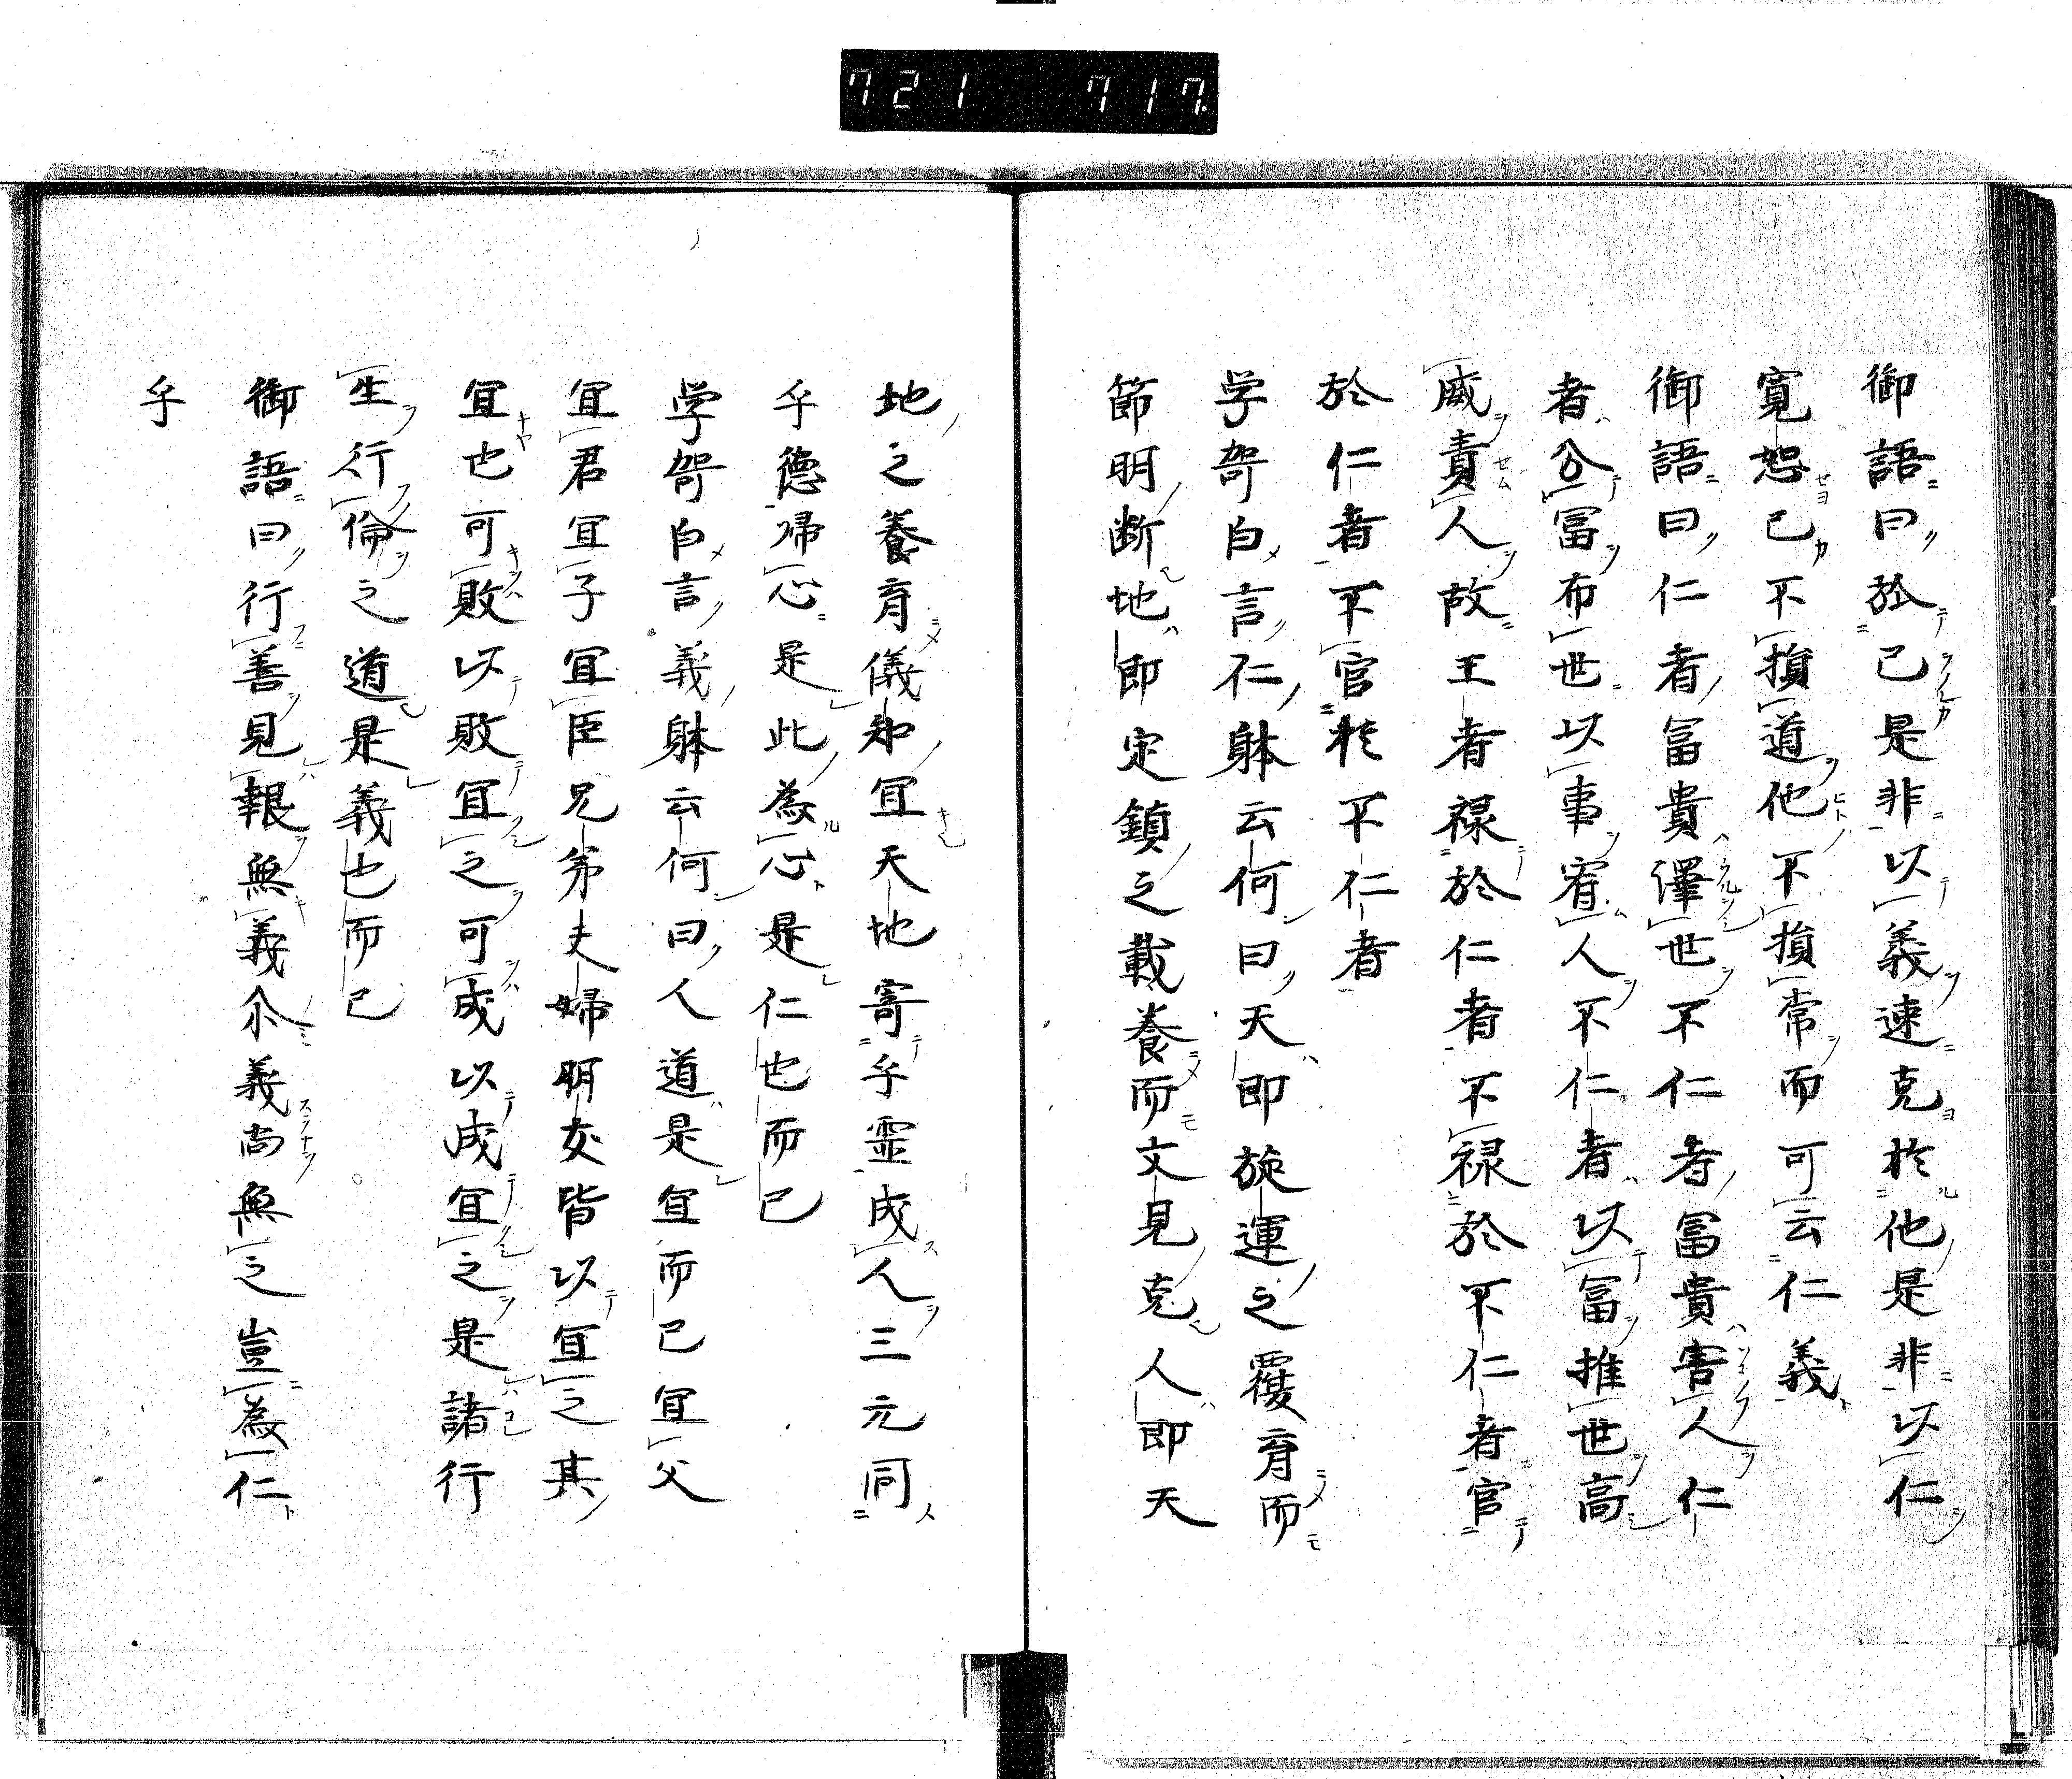 721 717
御語曰於己是非以義速克於他是非以仁
寛恕己不損道他不損常而可云仁義
御語曰仁者富貴澤世不仁者富貴害人仁
者公富布世以事宥人不仁者以富推世高
威責人故王者禄於仁者不禄於不仁者官
於仁者不官於不仁者
学哿白言仁躰云何曰天即旋運之覆育而
節明断地即定鎮之載養而文見克人即天
地之養育儀知宜天地寄乎霊成人三元同
乎德帰心是此為心是仁也而已
学哿白言義躰云何曰人道是宜而已宜父
宜君宜子宜臣兄弟夫婦朋友皆以宜之其
宜也可敗以敗宜之可成以成宜之是諸行
生行倫之道是義也而已
御語曰行善見報無義尒義尚無之豈為仁
乎